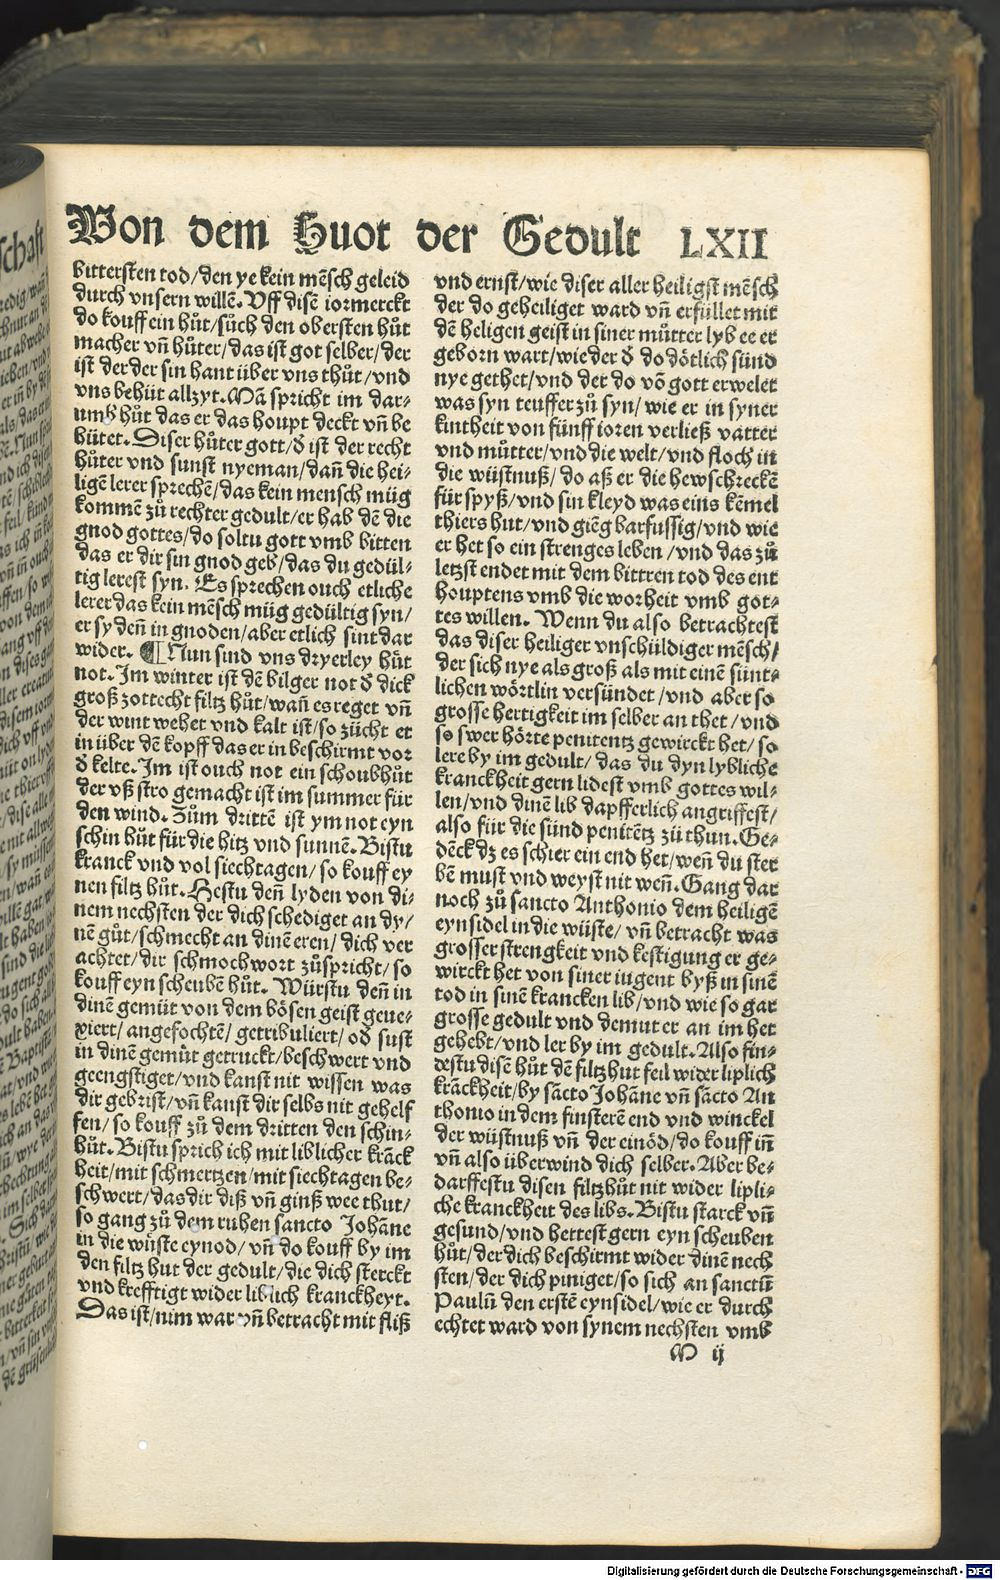 Von dem Huot der Gedult LXII
bittersten tod/den ye kein mẽsch geleid
durch vnsern willẽ. Vff disẽ iormerckt
do kouff ein hůt/sůch den obersten hůt
macher vñ hůter/das ist got selber/der
ist der der sin hant über vns thůt/vnd
vns behüt allzyt. Mã spricht im dar⸗
umb hůt das er das houpt deckt vñ be
hütet. Diser hůter gott/d̕ ist der recht
hůter vnd sunst nyeman/dañ die hei⸗
ligẽ lerer sprechẽ/das kein mensch müg
kommẽ zů rechter gedult/er hab dẽ die
gnod gottes/do soltu gott vmb bitten
das er dir sin gnod geb/das du gedül⸗
tig lerest syn. Es sprechen ouch etliche
lerer das kein mẽsch müg gedültig syn/
er sy deñ in gnoden/aber etlich sint dar
wider. ¶ Nun sind vns dryerley hůt
not. Im winter ist dẽ bilger not d̕ dick
groß zottecht filtz hůt/wañ es reget vñ
der wint wehet vnd kalt ist/so zücht er
in über dẽ kopff das er in beschirmt vor
d̕ kelte. Im ist ouch not ein schoubhůt
der vß stro gemacht ist im summer für
den wind. Zům drittẽ ist ym not eyn
schin hůt für die hitz vnd sunnẽ. Bistu
kranck vnd vol siechtagen/so kouff ey
nen filtz hůt. Hestu deñ lyden von di⸗
nem nechsten der dich schediget an dy/
nẽ gůt/schmecht an dinẽ eren/dich ver
achtet/dir schmoch wort zůspricht/so
kouff eyn scheubẽ hůt. Würstu deñ in
dinẽ gemüt von dem bösen geist geue⸗
xiert/angefochtẽ/getribuliert/od̕ sust
in dinẽ gemüt getruckt/beschwert vnd
geengstiget/vnd kanst nit wissen was
dir gebrist/vñ kanst dir selbs nit gehelf
fen/so kouff zů dem dritten den schin⸗
hůt. Bistu sprich ich mit liblicher krãck
heit/mit schmertzen/mit siechtagen be⸗
schwert/das dir diß vñ ginß wee thut/
so gang zů dem ruhen sancto Johãne
in die wůste eynod/vñ do kouff by im
den filtz hut der gedult/die dich sterckt
vnd krefftigt wider liblich kranckheyt.
Das ist/nim war vñ betracht mit fliß
vnd ernst/wie diser aller heiligst mẽsch
der do geheiliget ward vñ erfüllet mit
dẽ heligen geist in siner můtter lyb ee er
geborn wart/wie der d̕ do dötlich sünd
nye gethet/vnd der do võ gott erwelet
was syn teuffer zů syn/wie er in syner
kintheit von fünff ioren verließ vatter
vnd můtter/vnd die welt/vnd floch in
die wüstnuß/do aß er die hewschreckẽ
für spyß/vnd sin kleyd was eins kẽmel
thiers hut/vnd giẽg barfussig/vnd wie
er het so ein strenges leben/vnd das zů
letzst endet mit dem bittren tod des ent
houptens vmb die worheit vmb got⸗
tes willen. Wenn du also betrachtest
das diser heiliger vnschüldiger mẽsch/
der sich nye als groß als mit einẽ sünt⸗
lichen wörtlin versündet/vnd aber so
grosse hertigkeit im selber an thet/vnd
so swer hörte penitentz gewirckt het/so
lere by im gedult/das du dyn lybliche
kranckheit gern lidest vmb gottes wil⸗
len/vnd dinẽ lib dapfferlich angriffest/
also für die sünd penitẽtz zů thun. Ge⸗
dẽck dz es schier ein end het/weñ du ster
bẽ must vnd weyst nit weñ. Gang dar
noch zů sancto Anthonio dem heiligẽ
eynsidel in die wüste/vñ betracht was
grosser strengkeit vnd kestigung er ge⸗
wirckt het von siner iugent byß in sinẽ
tod in sinẽ krancken lib/vnd wie so gar
grosse gedult vnd demut er an im het
gehebt/vnd ler by im gedult. Also fin⸗
destu disẽ hůt dẽ filtz hut feil wider liplich
krãckheit/by sãcto Johãne vñ sãcto An
thonio in dem finsterẽ end vnd winckel
der wüstnuß vñ der einöd/do kouff iñ
vñ also überwind dich selber. Aber be⸗
darffestu disen filtzhůt nit wider lipli⸗
che kranckheit des libs. Bistu starck vñ
gesund/vnd hettest gern eyn scheuben
hůt/der dich beschirmt wider dinẽ nech
sten/der dich piniget/so sich an sanctũ
Paulũ den erstẽ eynsidel/wie er durch
echtet ward von synem nechsten vmb
M ij
Digitalisierung gefördert durch die Deutsche Forschungsgemeinschaft - DFG